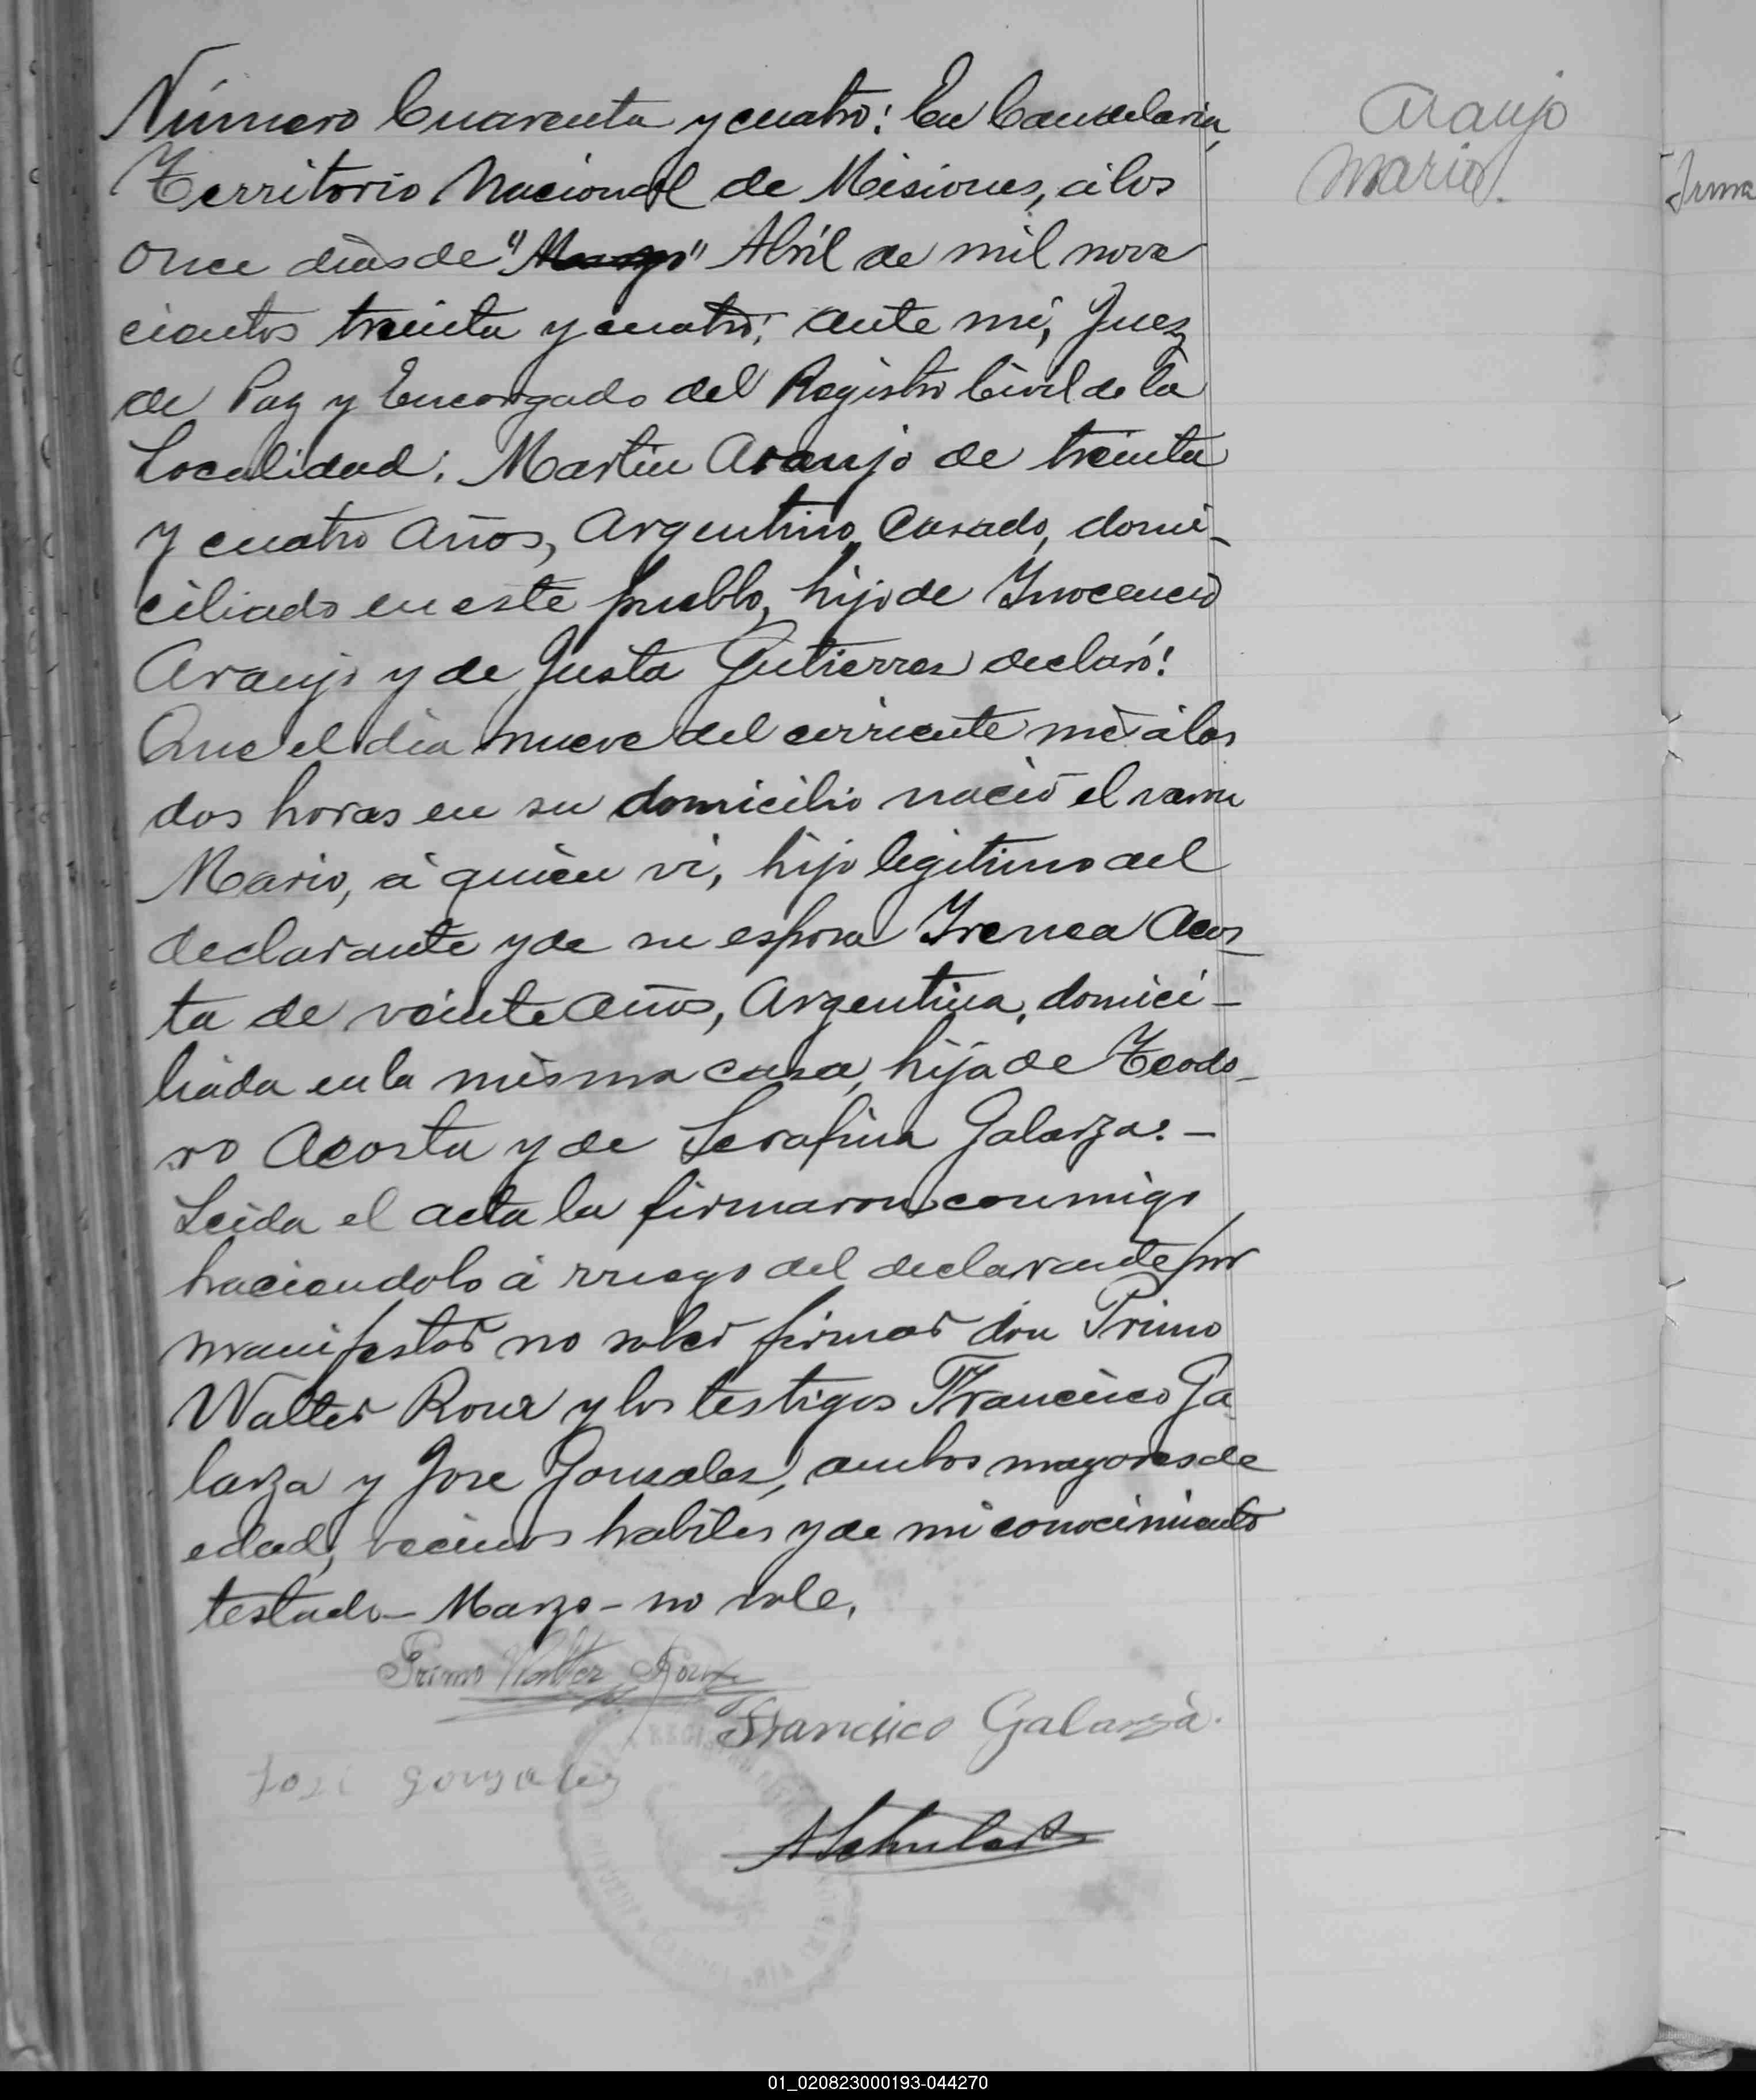 Número Cuarenta y cuatro: En Candelaria,
Territorio Nacional de Misiones, á los
once dias de "Marzo" Abril de mil nove
cientos treinta y cuatro: ante mi, Juez
de Paz y Encargado del Registro Civil de la
Localidad: Martin Araujo de treinta
y cuatro años, Argentino, Casado, domi-
ciliado en este pueblo, hijo de Inocencio
Araujo y de Justa Gutierres declaró:
Que el dia nueve del corriente mes á las
dos horas en su domicilio nació el varon
Mario, á quien vi, hijo legitimo del
declarante y de su esposa Irenea Acos-
ta de veinte años, Argentina, domici-
liada en la misma casa, hija de Teodo-
ro Acosta y de Serafina Galarza.-
Leida el acta la firmaron conmigo
haciendolo á rruego del declarante por
manifestar no saber firmar don Primo
Walter Roux y los testigos Francisco Ga
larza y Jose Gonsales, ambos mayores de
edad, vecinos habiles y de mi conocimiento
testado - Marzo - no vale.
Primo Walter Roux
Francisco Galarza.
José gonzalez
Araujo
Mario.
Irma
01_020823000193-044270